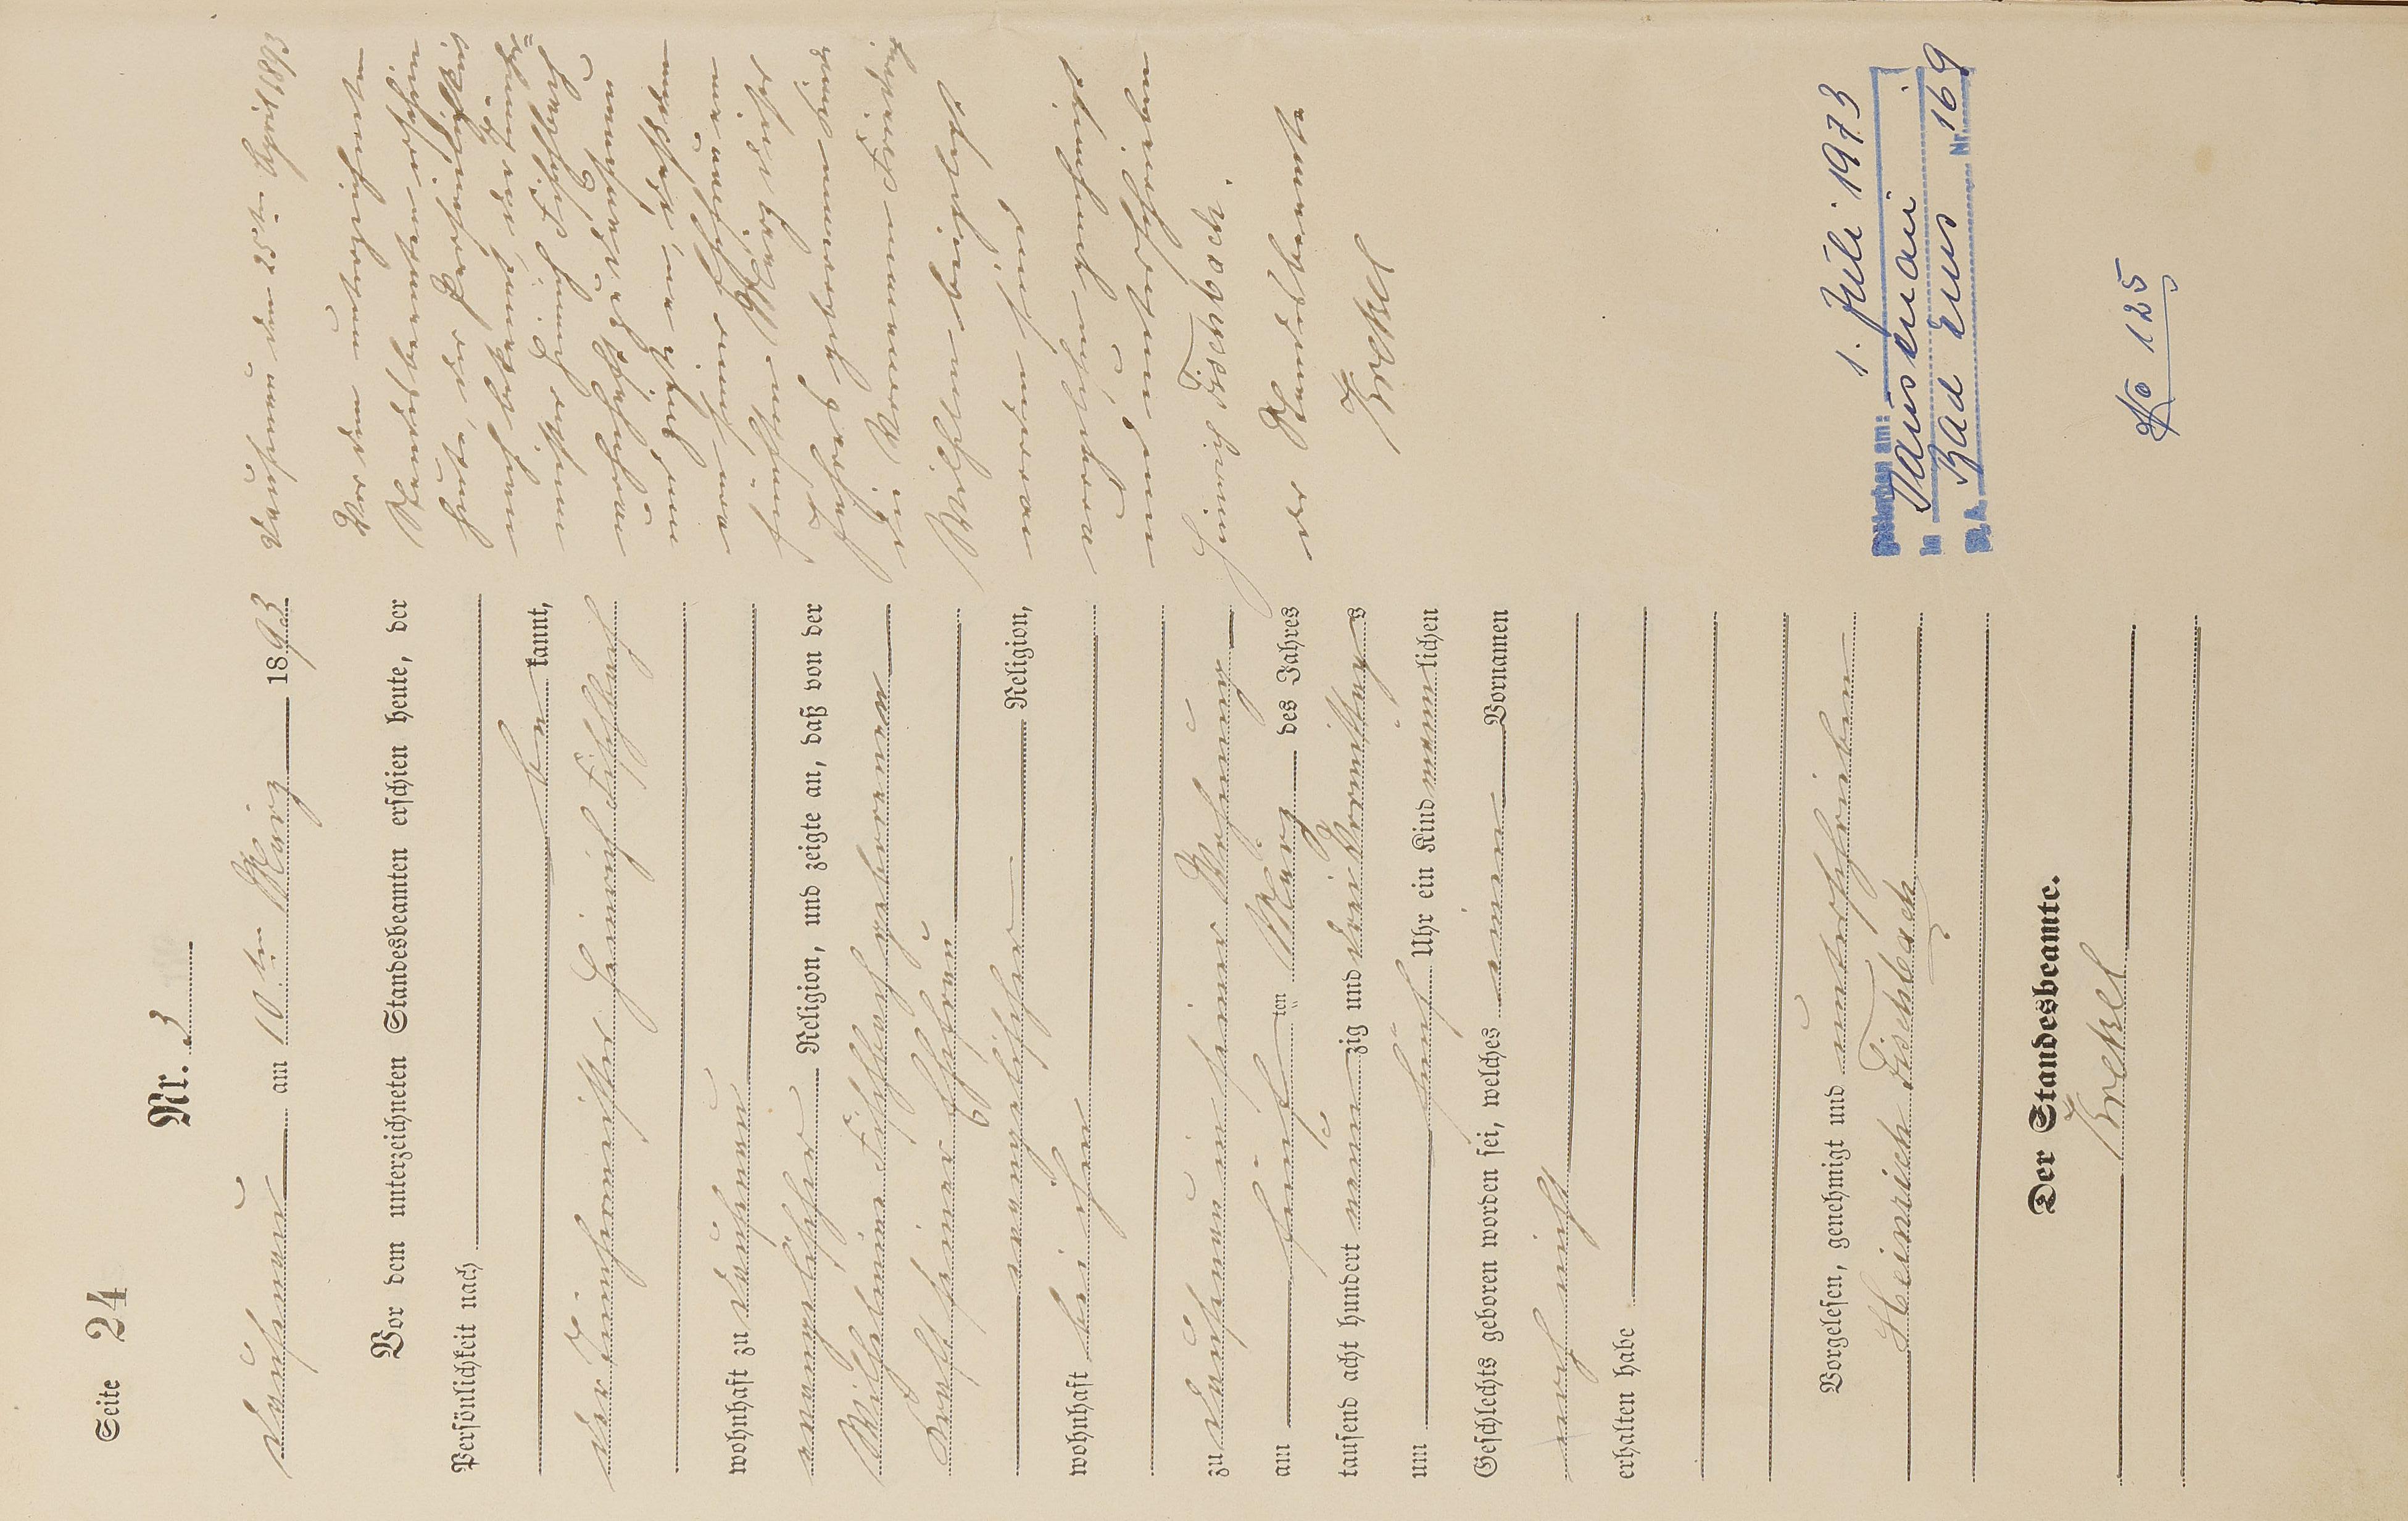 Seite 24
Nr. 3
Dausenau am 10ten März 1893
Vor dem unterzeichneten Standesbeamten erschien heute, der
Persönlichkeit nach
be kannt,
der Tünchermeister Heinrich Fischbach
wohnhaft zu Dausenau
evangelischer Religion, und zeigte an, daß von der
Wilhelmine Fischbach geborenen
seiner Ehefrau
evangelischer Religion,
wohnhaft bei ihm
zu Dausenau in seiner Wohnung
am fünf ten März des Jahres
tausend acht hundert neun zig und drei Vormittags
um fünf Uhr ein Kind männ lichen
Geschlechts geboren worden sei, welches einen Vornamen
noch nicht
erhalten habe
Vorgelesen, genehmigt und unterschrieben
Heinrich Fischbach
Der Standesbeamte.
Krekel
Dausenau den 25ten April 1893
Vor dem unterzeichneten
Standesbeamten erschien
heute, der Persönlichkeit
nach bekannt, der Tüncher=
meister Heinrich Fischbach
wohnhaft zu Dausenau
und zeigte an, daß dem
von seiner Ehefrau am
fünften März dieses
Jahres geborenen Kinde
die Vornamen Friedrich
Wilhelm beigelegt
worden sind.
Vorgelesen genehmigt
und unterschrieben
Heinrich Fischbach.
der Standesbeamte
Krekel
Gestorben am: 1. Juli 1973
in Dausenau
St. A. Bad Ems Nr. 169
No 125